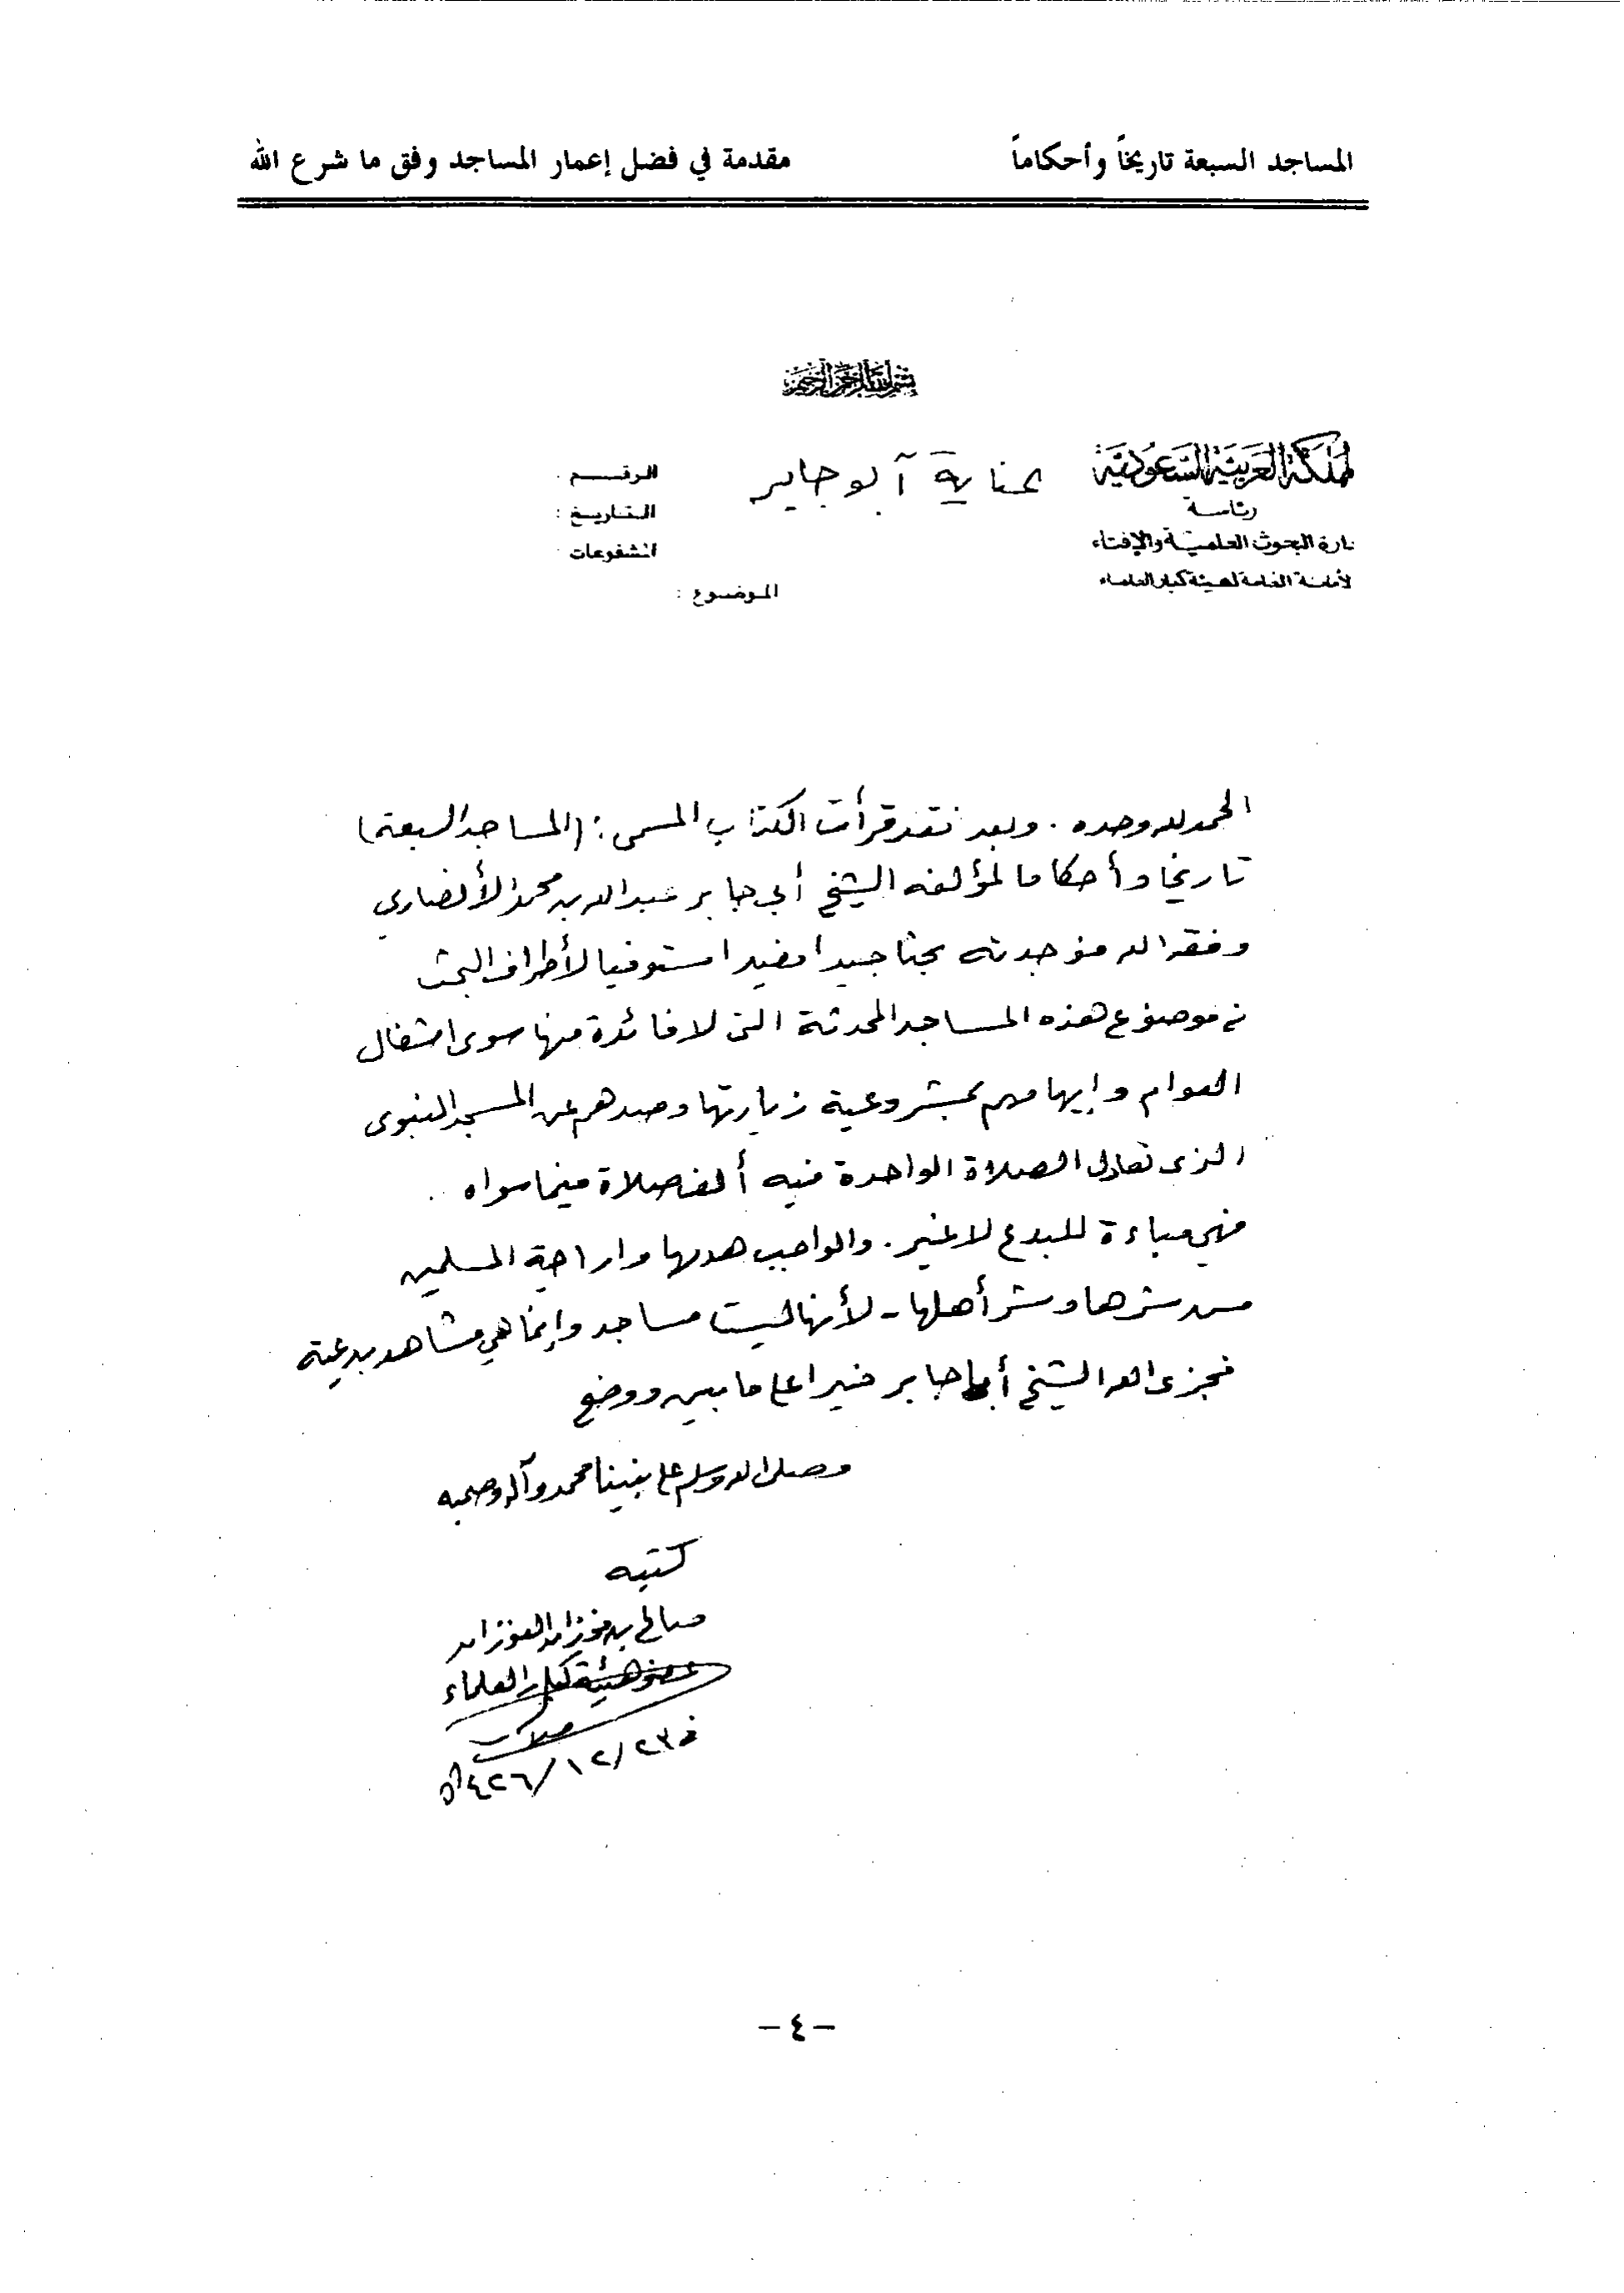 المساجد السبعة تاريخاً وأحكاماً
مقدمة في فضل إعمار المساجد وفق ما شرع الله
بسم الله الرحمن الرحيم
لمملكة العربية السعودية
رئاسة
دارة البحوث العلمية والإفتاء
لأمانة العامة لهيئة كبار العلماء
عناية أبو جابر
الرقـــم :
التاريخ :
المشفوعات :
الموضوع :
الحمد لله وحده . وبعد فقد قرأت الكتاب المسمى : (المساجد السبعة)
تاريخا وأحكاما لمؤلفه الشيخ أبي جابر عبدالله بن محمد الأنصاري
وفقه الله فوجدته بحثا جيدا مفيدا مستوفيا لأطراف البحث
في موضوع هذه المساجد المحدثة التي لا فائدة منها سوى اشغال
العوام وإيهامهم بمشروعية زيارتها وصدهم عن المسجد النبوي
الذي تعادل الصلاة الواحدة فيه ألف صلاة فيما سواه .
فهي مباءة للبدع لا غير . والواجب هدمها واراحة المسلمين
من شرها وشر أهلها - لأنها ليست مساجد وإنما هي مشاهد بدعية
فجزى الله الشيخ أبا جابر خيرا على ما بين ووضح
وصلى الله وسلم على نبينا محمد وآله وصحبه
كتبه
صالح بن فوزان الفوزان
عضو هيئة كبار العلماء
في ٢٣/١٢/١٤٢٦هـ
– ٤ –